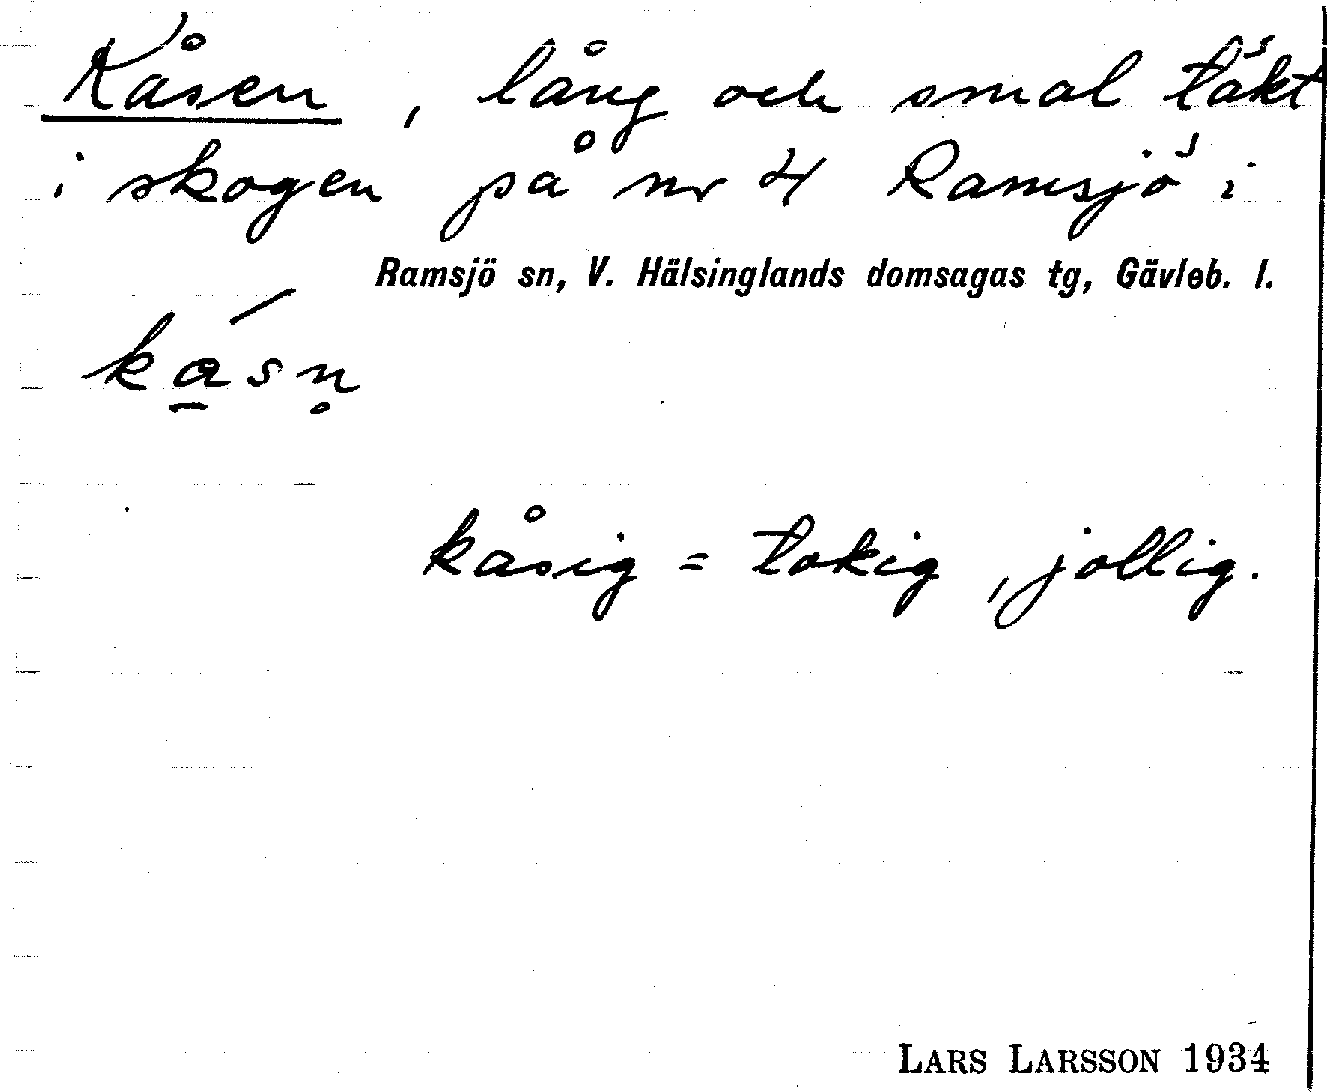 Kåsen, lång och smal täkt
i skogen på nr 4 Ramsjö i
Ramsjö sn, V. Hälsinglands domsagas tg, Gävleb. l.
ka̱´sn̥
kåsig = tokig, jollig.
LARS LARSSON 1934